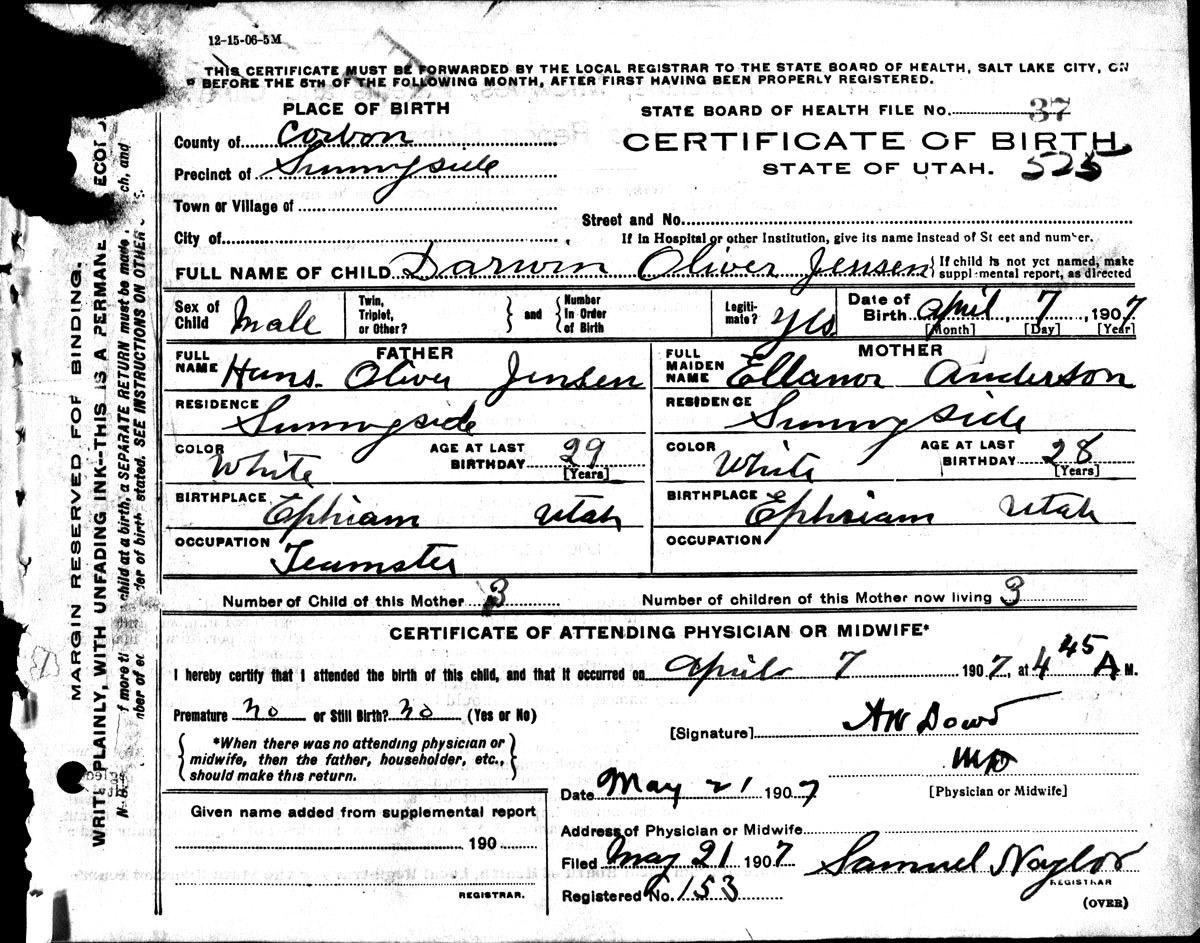 12-15-06-5M
THIS CERTIFICATE MUST BE FORWARDED BY THE LOCAL REGISTRAR TO THE STATE BOARD OF HEALTH, SALT LAKE CITY, ON
BEFORE THE 5TH OF THE FOLLOWING MONTH, AFTER FIRST HAVING BEEN PROPERLY REGISTERED.
PLACE OF BIRTH
STATE BOARD OF HEALTH FILE No. 37
County of Carbon
CERTIFICATE OF BIRTH
Precinct of Sunnyside
STATE OF UTAH. 525
Town or Village of
Street and No.
City of
If in Hospital or other Institution, give its name instead of St eet and number.
FULL NAME OF CHILD Darwin Oliver Jensen { If child is not yet named, make
supplemental report, as directed
Sex of Child Male
Twin, Triplet, or Other? } and { Number In Order of Birth
Legiti-mate? Yes
Date of Birth April 7, 1907
[Month] [Day] [Year]
FATHER
FULL NAME Hans. Oliver Jensen
RESIDENCE Sunnyside
COLOR White AGE AT LAST BIRTHDAY 29
[Years]
BIRTHPLACE Ephriam Utah
OCCUPATION Teamster
MOTHER
FULL MAIDEN NAME Ellanor Anderson
RESIDENCE Sunnyside
COLOR White AGE AT LAST BIRTHDAY 28
[Years]
BIRTHPLACE Ephriam Utah
OCCUPATION
Number of Child of this Mother 3 Number of children of this Mother now living 3
CERTIFICATE OF ATTENDING PHYSICIAN OR MIDWIFE*
I hereby certify that I attended the birth of this child, and that it occurred on April 7 1907, at 4 45 A M.
Premature no or Still Birth? no (Yes or No)
{ *When there was no attending physician or
midwife, then the father, householder, etc.,
should make this return. }
[Signature] AW Dowd
MD
[Physician or Midwife]
Date May 21 1907
Given name added from supplemental report
190
REGISTRAR.
Address of Physician or Midwife
Filed May 21 1907 Samuel Naylor
REGISTRAR
Registered No. 153
(OVER)
MARGIN RESERVED FOR BINDING.
WRITE PLAINLY, WITH UNFADING INK--THIS IS A PERMANE
child at a birth, a SEPARATE RETURN must be made
of birth stated. SEE INSTRUCTIONS ON OTHER